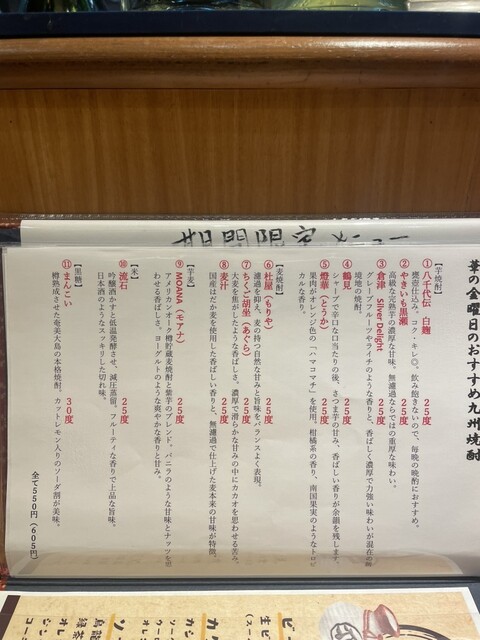 華の金曜日のおすすめ九州焼酎
【芋焼酎】
①八千代伝 白麹 25度
甕壺仕込み。コク・キレ◎。飲み飽きないので、毎晩の晩酌におすすめ。
②やきいも黒瀬 25度
高級な安納芋の濃厚な甘味。無濾過ならではの重厚な味わい。
③倉津 Silver Delight 25度
グレープフルーツやライチのような香りと、香ばしく濃厚で力強い味わいが混在の
境地の焼酎。
④鶴見 25度
シャープで辛口な口当たりの後、さつま芋の甘み、香ばしい香りが余韻を残します。
⑤燈華（とうか） 25度
果肉がオレンジ色の「ハマコマチ」を使用。柑橘系の香り、南国果実のようなトロピ
カルな香り。
【麦焼酎】
⑥杜屋（もりや） 25度
濾過を抑え、麦の持つ自然な甘みと旨味をバランスよく表現。
⑦ちくご胡坐（あぐら） 25度
大麦を焦がしたような香ばしさ。濃厚で滑らかな甘みの中にカカオを思わせる苦み。
⑧麦汁 25度
国産はだか麦を使用した香ばしい香りと、無濾過で仕上げた麦本来の甘味が特徴。
【芋麦】
⑨MOANA（モアナ） 25度
アメリカンオーク樽貯蔵麦焼酎と紫芋のブレンド。バニラのような甘味とナッツを思
わせる香ばしさ、ヨーグルトのような爽やかな香りと甘み。
【米】
⑩流石 25度
吟醸酒かすと低温発酵させ、減圧蒸留。フルーティな香りで上品な旨味。
日本酒のようなスッキリした切れ味。
【黒糖】
⑪まんこい 30度
樽熟成させた奄美大島の本格焼酎。カットレモン入りのソーダ割が美味。
全て550円（605円）
期間限定メニュー
ビー
生ビ
(スー
カク
カシ
ソー
ウー
オレ
ソー
烏龍
緑茶
オレ
ジン
コー